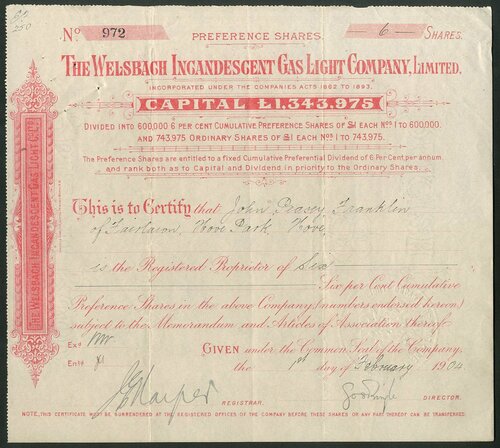 No 972 PREFERENCE SHARES. 6 SHARES.
THE WELSBACH INCANDESCENT GAS LIGHT COMPANY, LIMITED.
INCORPORATED UNDER THE COMPANIES ACTS 1862 TO 1893.
CAPITAL £1,343,975
DIVIDED INTO 600,000 6 PER CENT CUMULATIVE PREFERENCE SHARES OF £1 EACH Nos 1 TO 600,000.
AND 743,975 ORDINARY SHARES OF £1 EACH Nos 1 TO 743,975.
The Preference Shares are entitled to a fixed Cumulative Preferential Dividend of 6 Per Cent per annum
and rank both as to Capital and Dividend in priority to the Ordinary Shares.
This is to Certify that John Franklin
of Fairlawn, Hove Park, Hove
is the Registered Proprietor of Six
Six per Cent Cumulative
Preference Shares in the above Company (numbers endorsed hereon)
subject to the Memorandum and Articles of Association thereof.
Exd
GIVEN under the Common Seal of the Company,
Entd
the 1st day of February 1904
REGISTRAR.
DIRECTOR.
NOTE, THIS CERTIFICATE MUST BE SURRENDERED AT THE REGISTERED OFFICES OF THE COMPANY BEFORE THESE SHARES OR ANY PART THEREOF CAN BE TRANSFERRED.
THE WELSBACH INCANDESCENT GAS LIGHT Co LD